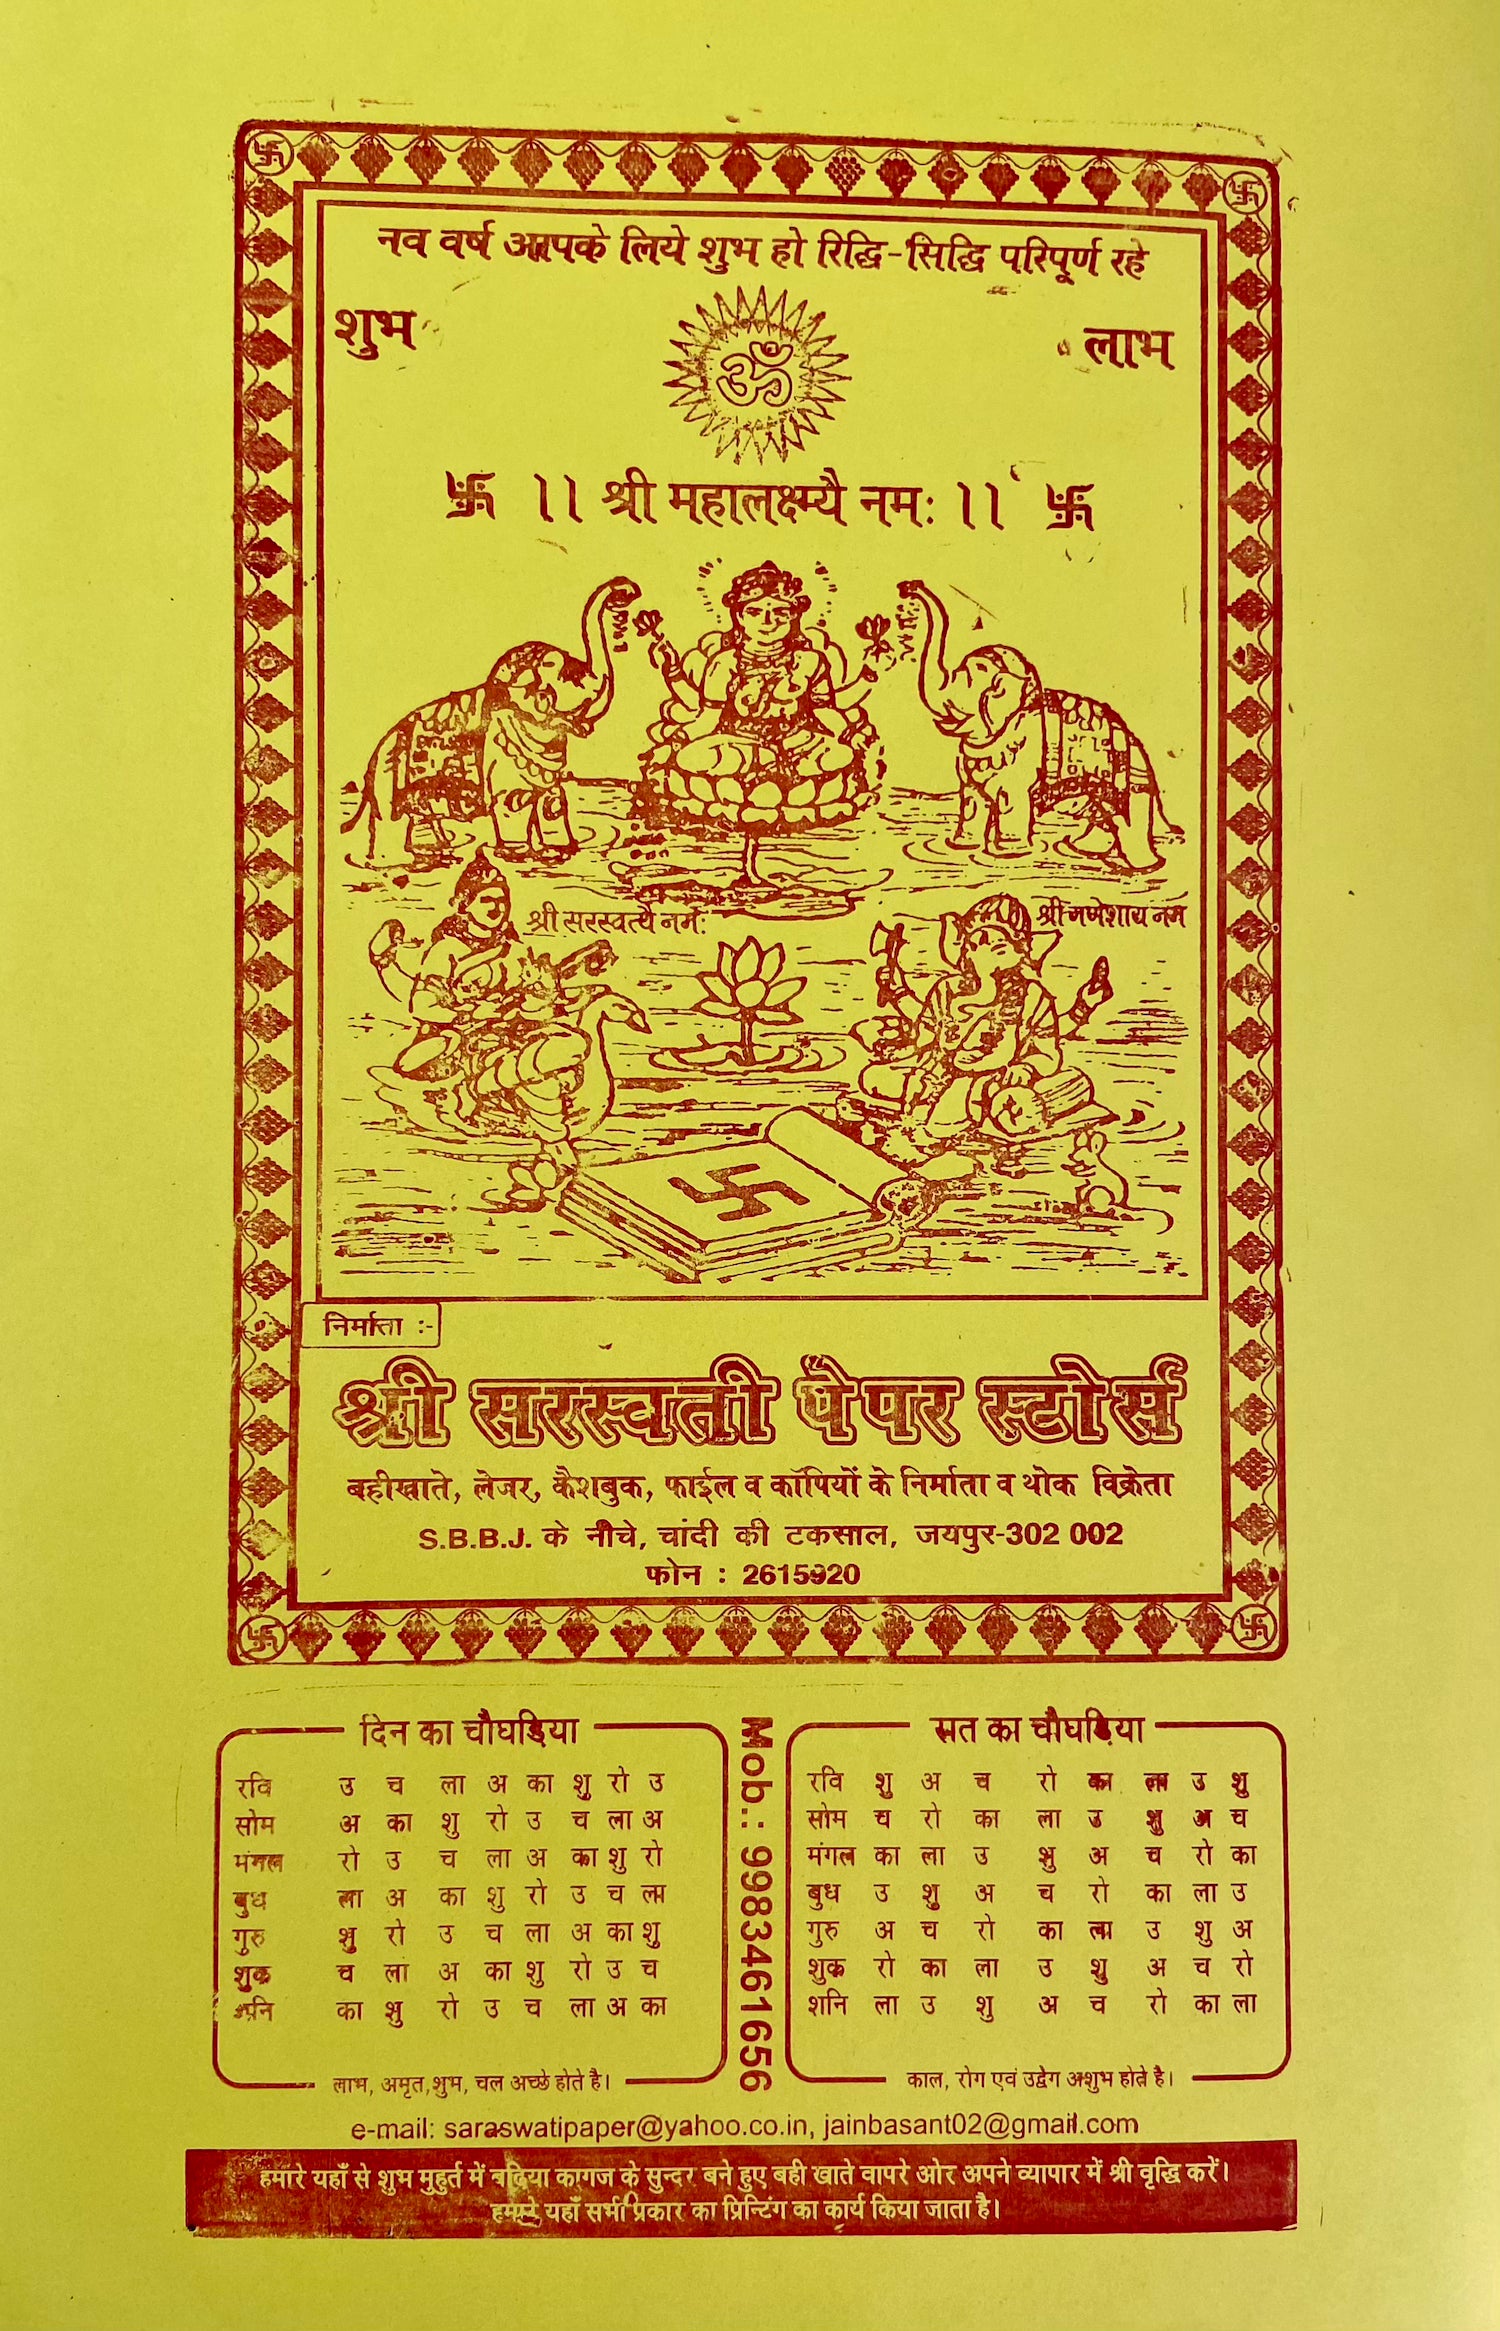 नव वर्ष आपके लिये शुभ हो रिद्धि-सिद्धि परिपूर्ण रहे
शुभ
लाभ
ॐ
卐 ।। श्री महालक्ष्म्यै नमः ।। 卐
श्री सरस्वत्यै नमः
श्री गणेशाय नम
निर्माता :-
श्री सरस्वती पेपर स्टोर्स
बहीखाते, लेजर, कैशबुक, फाईल व कॉपियों के निर्माता व थोक विक्रेता
S.B.B.J. के नीचे, चांदी की टकसाल, जयपुर-302 002
फोन : 2615920
दिन का चौघड़िया
रवि उ च ला अ का शु रो उ
सोम अ का शु रो उ च ला अ
मंगल रो उ च ला अ का शु रो
बुध ला अ का शु रो उ च ला
गुरु शु रो उ च ला अ का शु
शुक्र च ला अ का शु रो उ च
शनि का शु रो उ च ला अ का
लाभ, अमृत,शुभ, चल अच्छे होते है।
Mob.: 9983461656
रात का चौघड़िया
रवि शु अ च रो का ला उ शु
सोम च रो का ला उ शु अ च
मंगल का ला उ शु अ च रो का
बुध उ शु अ च रो का ला उ
गुरु अ च रो का ला उ शु अ
शुक्र रो का ला उ शु अ च रो
शनि ला उ शु अ च रो का ला
काल, रोग एवं उद्वेग अशुभ होते है।
e-mail: saraswatipaper@yahoo.co.in, jainbasant02@gmail.com
हमारे यहाँ से शुभ मुहुर्त में बढ़िया कागज के सुन्दर बने हुए बही खाते वापरे ओर अपने व्यापार में श्री वृद्धि करें।
हमारे यहाँ सभी प्रकार का प्रिन्टिंग का कार्य किया जाता है।